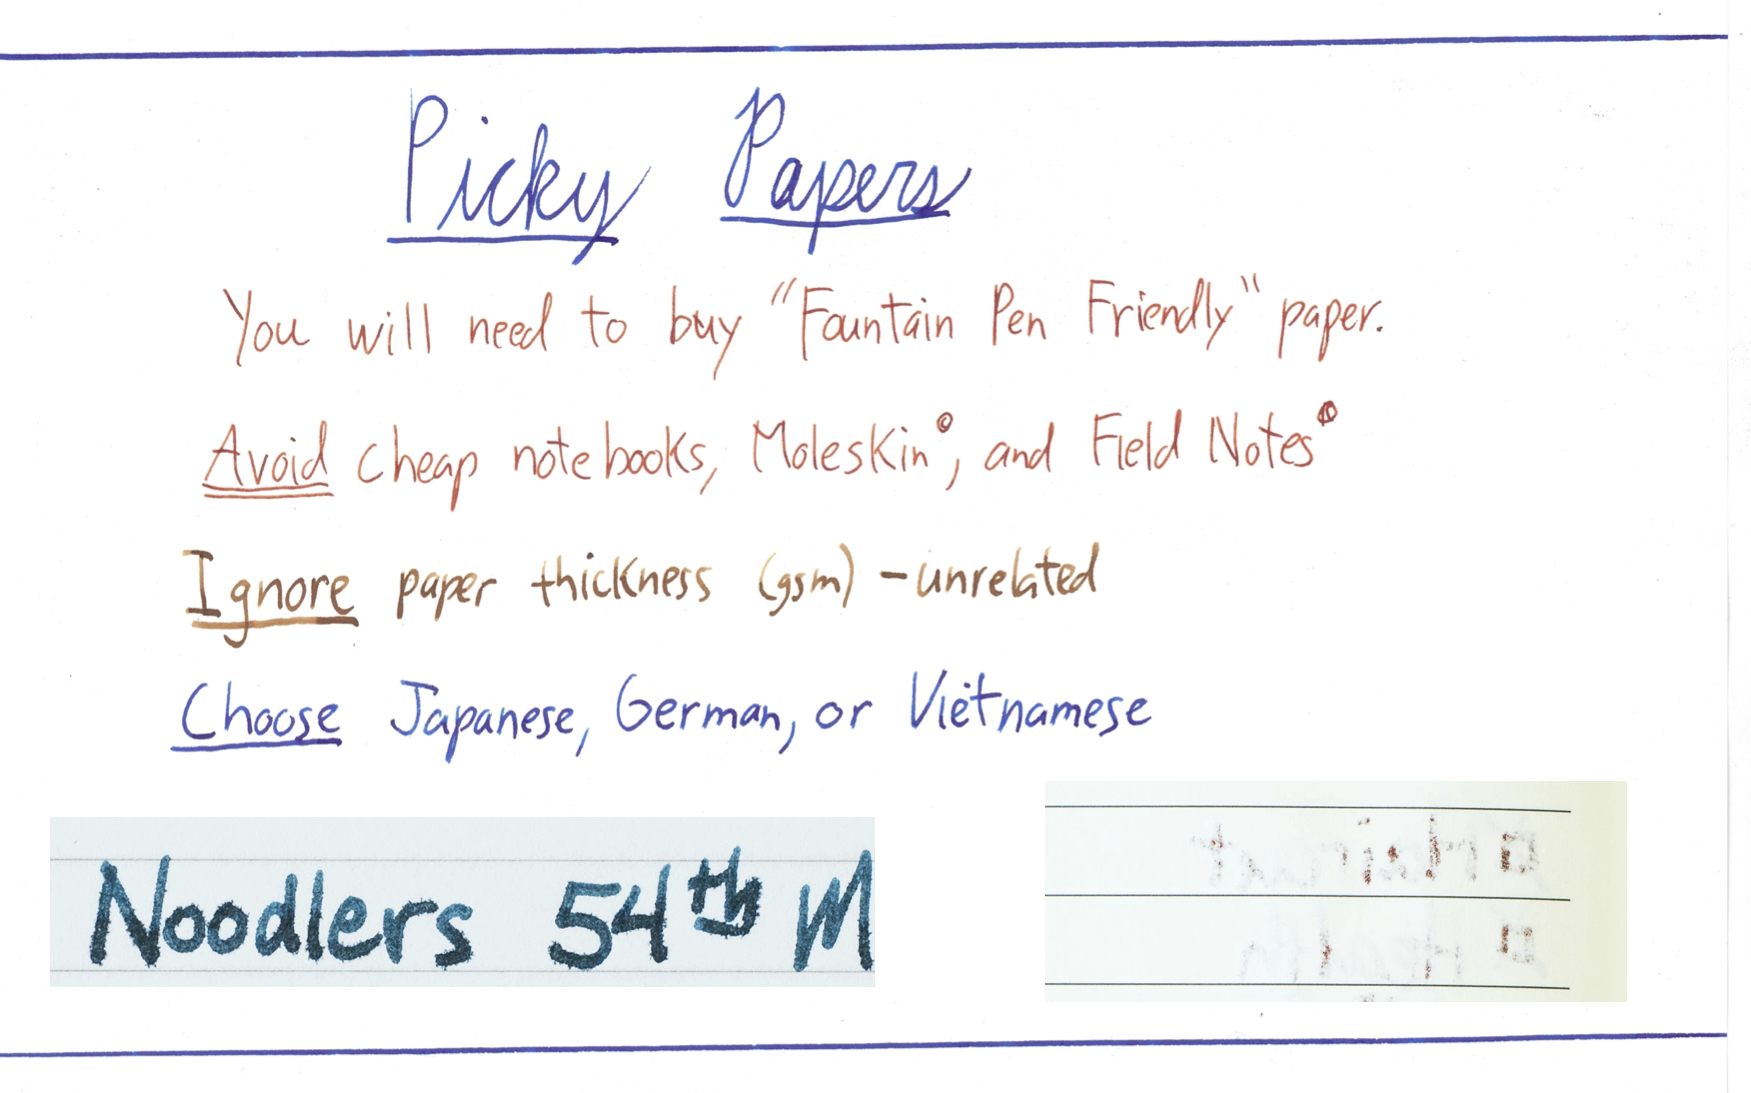 Picky Papers
You will need to buy "Fountain Pen Friendly" paper.
Avoid cheap notebooks, Moleskin©, and Field Notes®
Ignore paper thickness (gsm) - unrelated
Choose Japanese, German, or Vietnamese
Noodlers 54th M